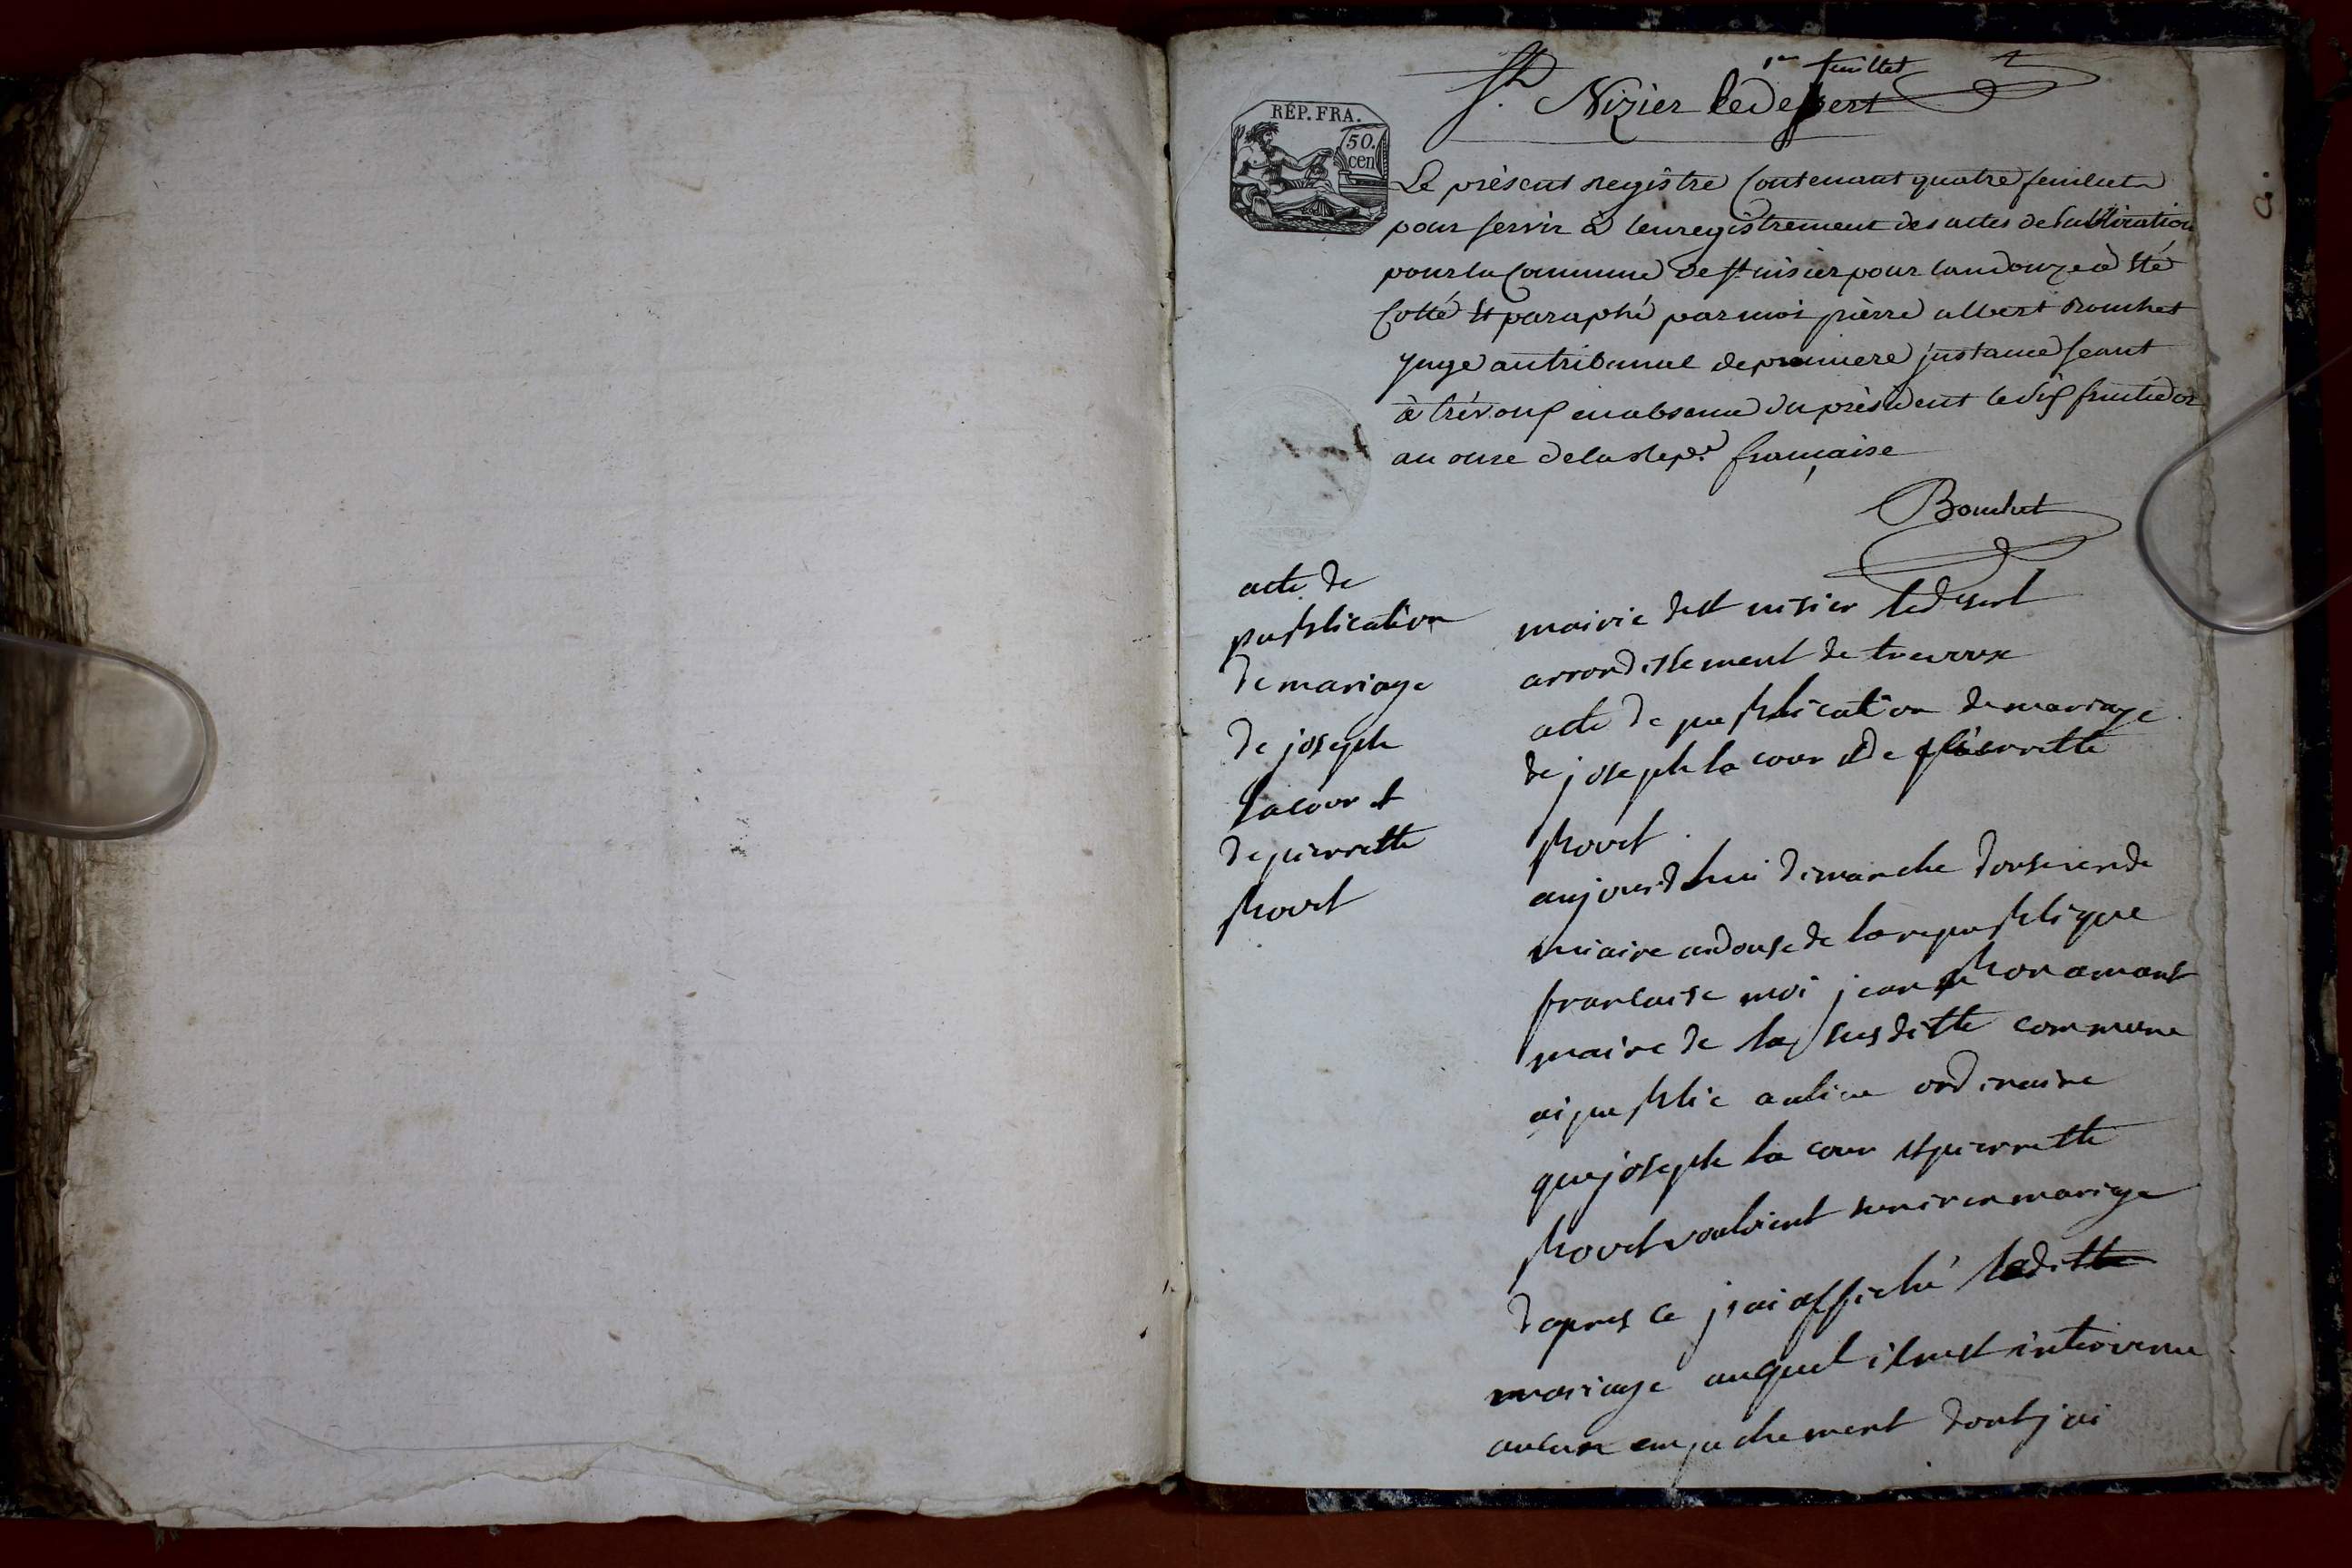 1er feuillet
St. Nizier le desert
RÉP. FRA.
50.
cen
Le présent registre contenant quatre feuillets
pour servir à lenregistrement des actes de Publication
pour la commune de St nisier pour lan douze a été
cotté et paraphé par moi pierre albert Bouchet
juge au tribunal de premiere instance seant
à trévoux en absence du président le dix fructidor
an onze de la rep.e française
Bouchet
acte de
publication
de mariage
de joseph
lacour et
de pierrette
bovet
mairie de st nisier le desert
arrondissement de trevoux
acte de publication de mariage
de joseph la cour et de pierrette
bovet
aujourdhui dimanche
miaire an douse de la republique
francaise moi jean bonamant
maire de la susditte commune
ai publie au lieu ordinaire
que joseph la cour et pierrette
bovet vouloient sunir en mariage
dapres ce jai affiché leditte
mariage auquel il nest intervenu
aucun empechement dont jai